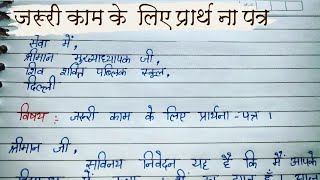 जरुरी काम के लिए प्रार्थना पत्र
सेवा में,
श्रीमान मुख्याध्यापक जी,
शिव शक्ति पब्लिक स्कूल,
दिल्ली
विषय : जरुरी काम के लिए प्रार्थना-पत्र ।
श्रीमान जी,
सविनय निवेदन यह है कि मैं आपके